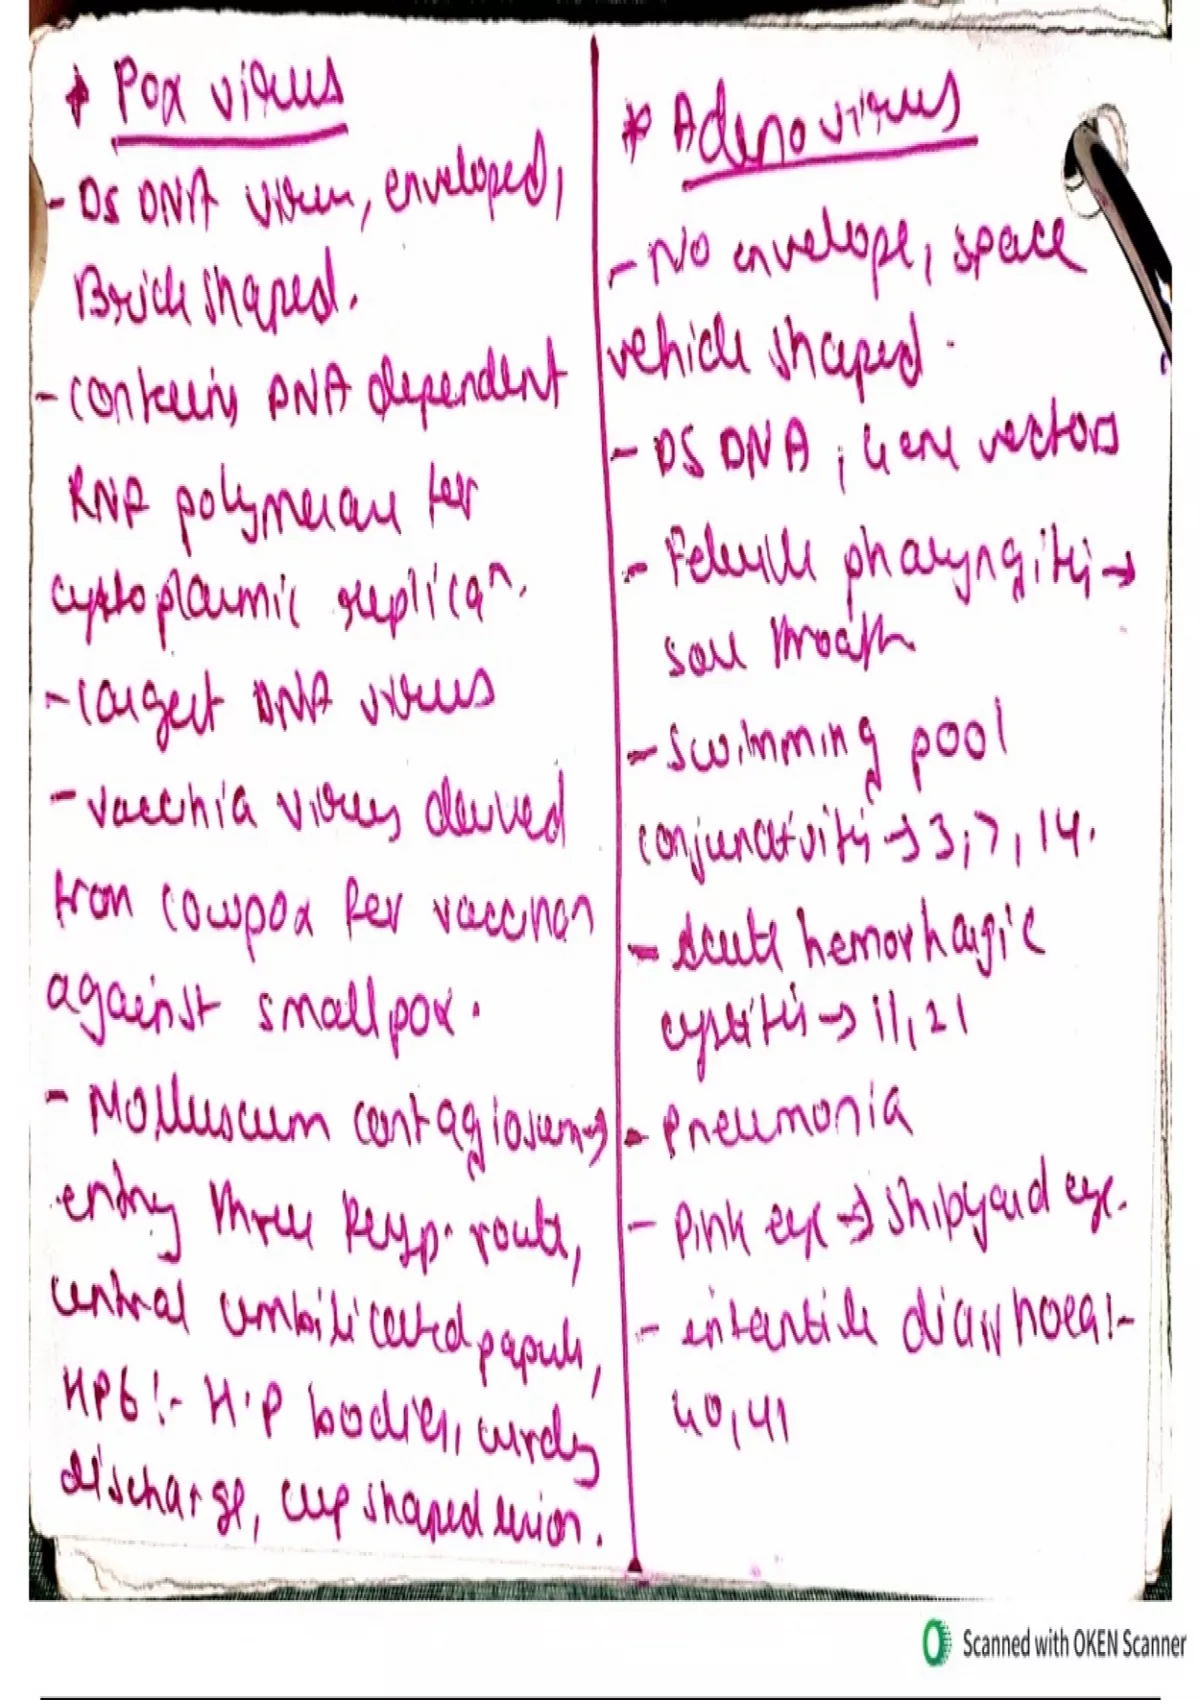 * Pox virus
- DS DNA virus, enveloped,
Brick shaped.
- contains DNA dependent
RNA polymerase for
cytoplasmic replicaⁿ.
- largest DNA virus
- vacchia virus derived
from cowpox for vaccinan
against smallpox.
- Molluscum contagiosum →
entry three Resp. route,
central umbilicated papule,
HPE!- H.P bodies, curdy
discharge, cup shaped lesion.
* Adenovirus
- No envelope, space
vehicle shaped.
- DS DNA, Gene vectors
- Febrile pharyngitis →
sore throath
- Swimming pool
conjunctivitis → 3, 7, 14.
- Acute hemorhagic
cystitis → 11, 21
- Pneumonia
- Pink eye → shipyard eye.
- infantile diarrhoea!-
40, 41
Scanned with OKEN Scanner